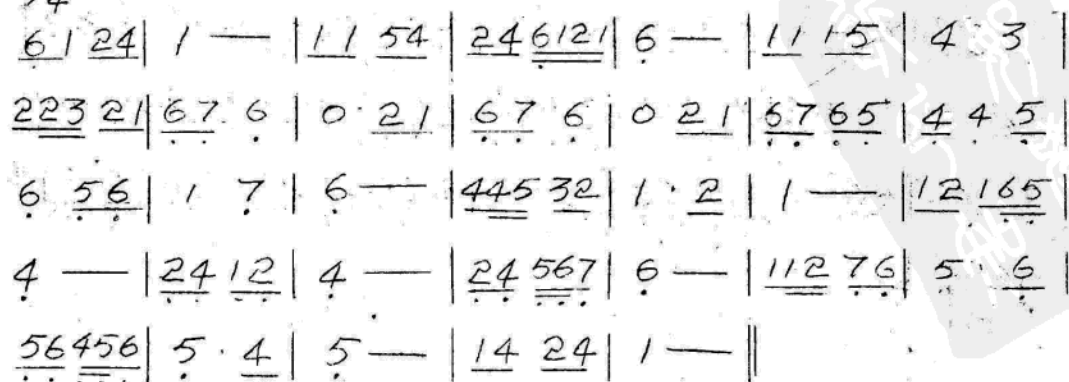 6 1 2 4 | 1 — | 1 1 5 4 | 2 4 6 1 2 1 | 6 — | 1 1 1 5 | 4 3 |
2 2 3 2 1 | 6 7 6 | 0 2 1 | 6 7 6 | 0 2 1 | 6 7 6 5 | 4 4 5 |
6 5 6 | 1 7 | 6 — | 4 4 5 3 2 | 1 · 2 | 1 — | 1 2 1 6 5 |
4 — | 2 4 1 2 | 4 — | 2 4 5 6 7 | 6 — | 1 1 2 7 6 | 5 · 6 |
5 6 4 5 6 | 5 · 4 | 5 — | 1 4 2 4 | 1 — ||